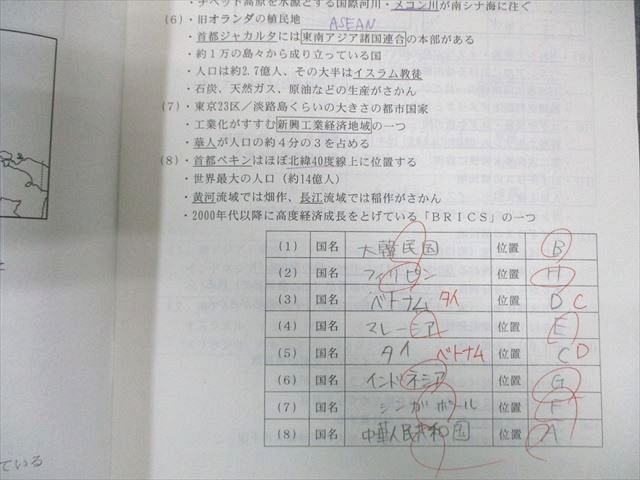 ・チベット高原を水源とする国際河川・メコン川が南シナ海に注ぐ
(6)・旧オランダの植民地
ASEAN
・首都ジャカルタには東南アジア諸国連合の本部がある
・約1万の島々から成り立っている国
・人口は約2.7億人、その大半はイスラム教徒
・石炭、天然ガス、原油などの生産がさかん
(7)・東京23区／淡路島くらいの大きさの都市国家
・工業化がすすむ新興工業経済地域の一つ
・華人が人口の約4分の3を占める
(8)・首都ペキンはほぼ北緯40度線上に位置する
・世界最大の人口(約14億人)
・黄河流域では畑作、長江流域では稲作がさかん
・2000年代以降に高度経済成長をとげている「BRICS」の一つ
(1) 国名 大韓民国 位置 B
(2) 国名 フィリピン 位置 H
(3) 国名 ベトナム タイ 位置 D C
(4) 国名 マレーシア 位置 E
(5) 国名 タイ ベトナム 位置 C D
(6) 国名 インドネシア 位置 G
(7) 国名 シンガポール 位置 F
(8) 国名 中華人民共和国 位置 A
ている